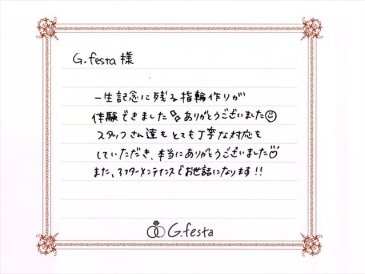 G.festa 様
一生記念に残る指輪作りが
体験できました ありがとうございました☺
スタッフさん達もとても丁寧な対応を
していただき、本当にありがとうございました☺
また、アフターメンテナンスでお世話になります!!
G.festa